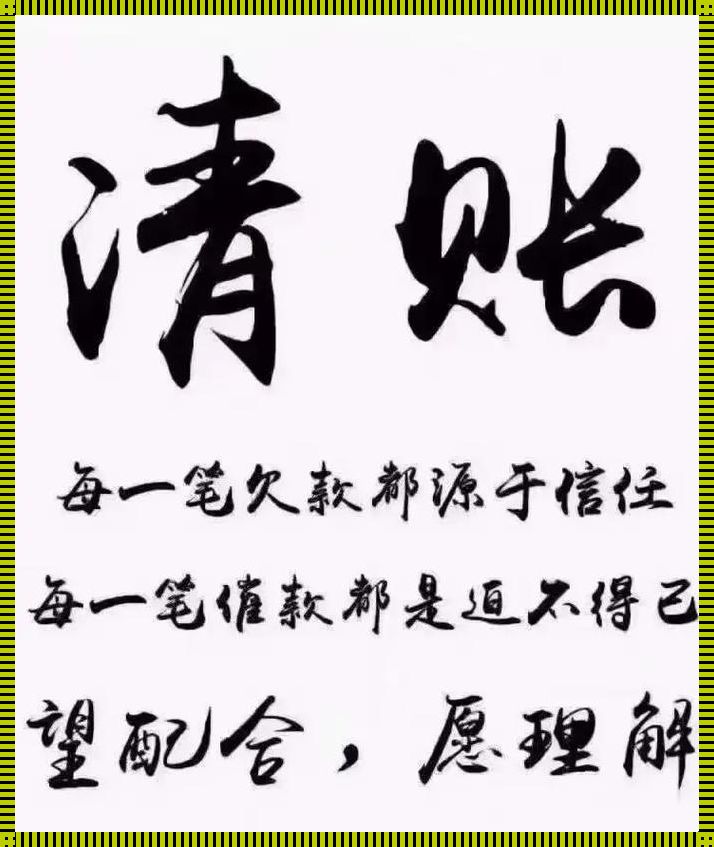 清账
每一笔欠款都源于信任
每一笔催款都是迫不得已
望配合，愿理解